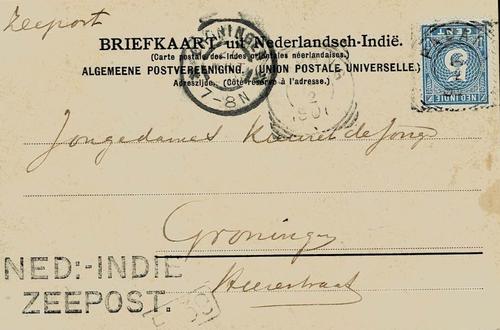 Zeepost
GRONINGEN
7-8N
BRIEFKAART uit Nederlandsch-Indië.
(Carte postale des Indes orientales néerlandaises.)
ALGEMEENE POSTVEREENIGING. (UNION POSTALE UNIVERSELLE.)
Adreszijde. (Côté réservé à l'adresse.)
2
1901
5
NED-INDIE
Jongedames de Jong
Groningen
Heerestraat
NED:-INDIE
ZEEPOST.